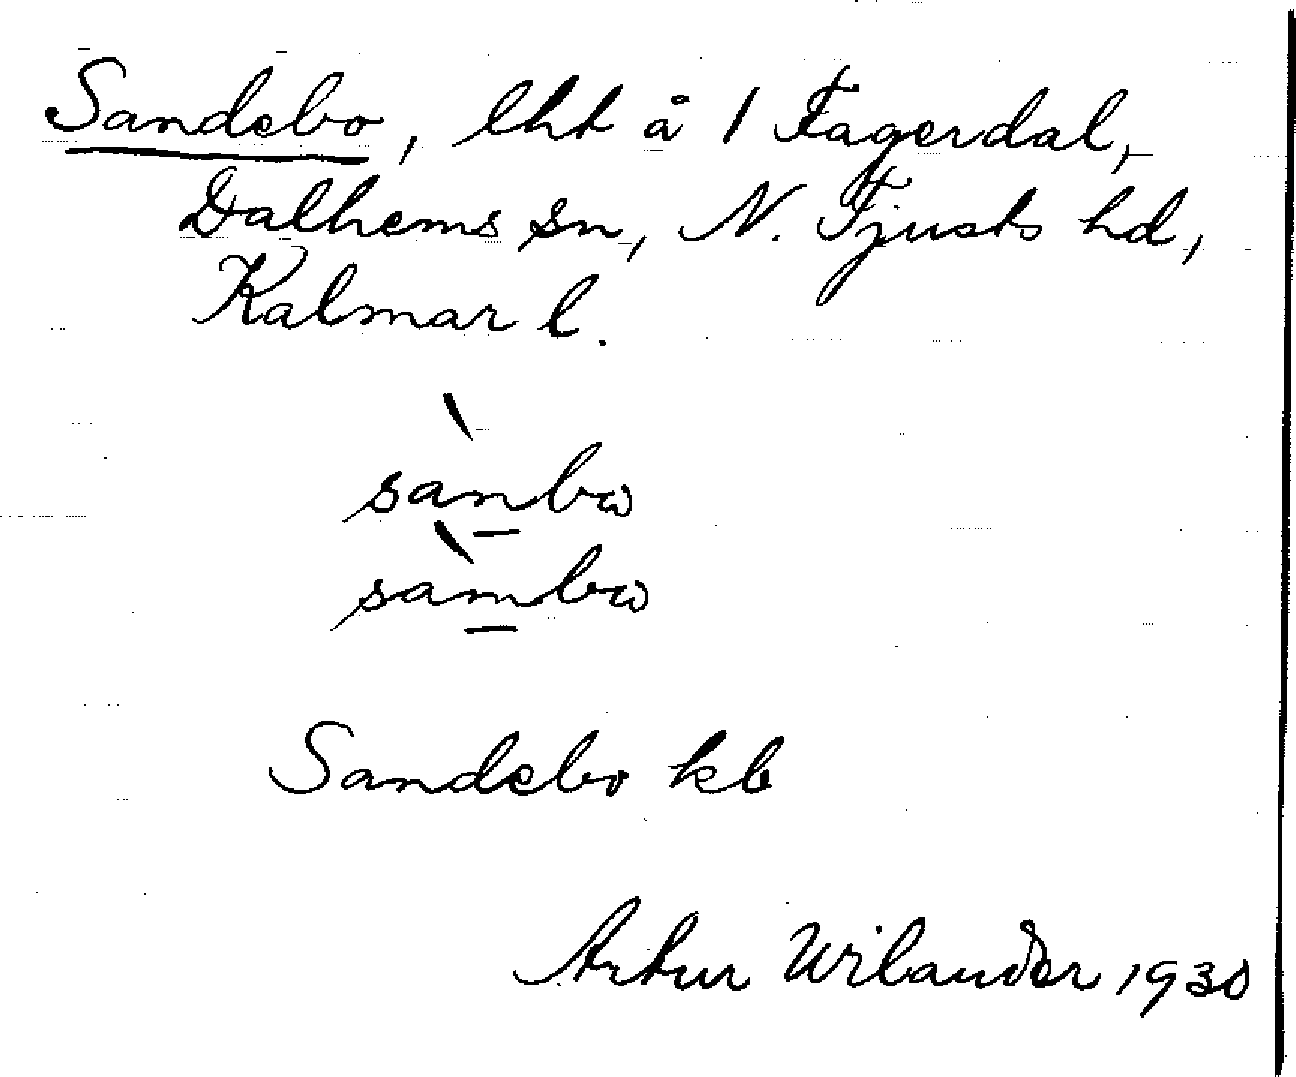 Sandebo, lht å 1 Fagerdal,
Dalhems sn, N. Tjusts hd,
Kalmar l.
sàn̲bω
sàm̲bω
Sandebo kb
Artur Wilander 1930